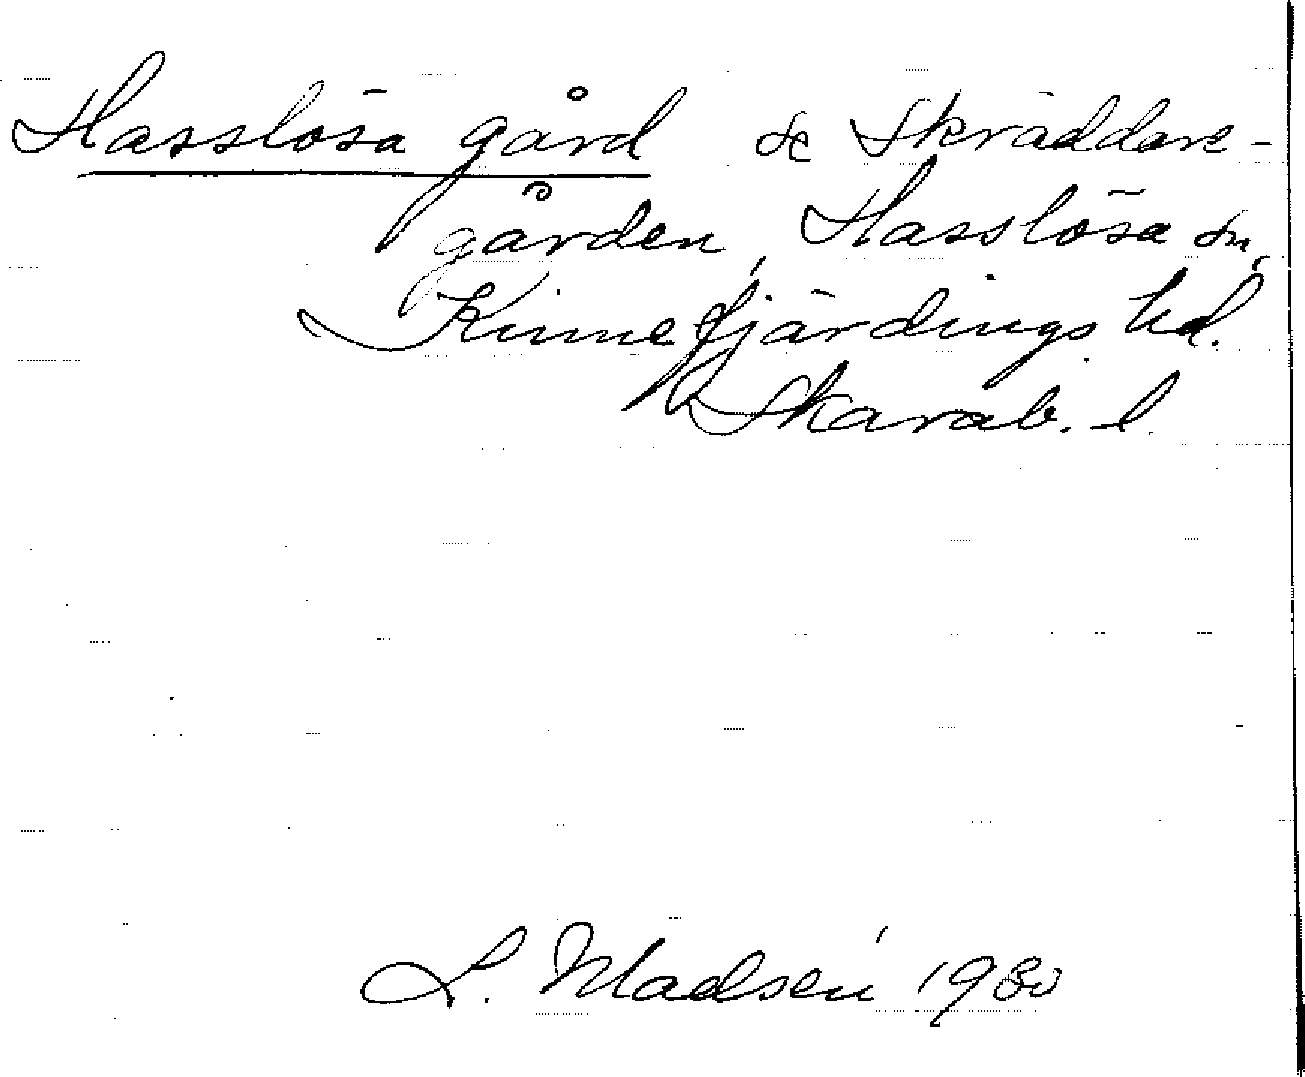 Hasslösa gård se Skräddare-
gården, Hasslösa sn,
Kinnefjärdings hd.
Skarab. l.
L. Madsén 1980